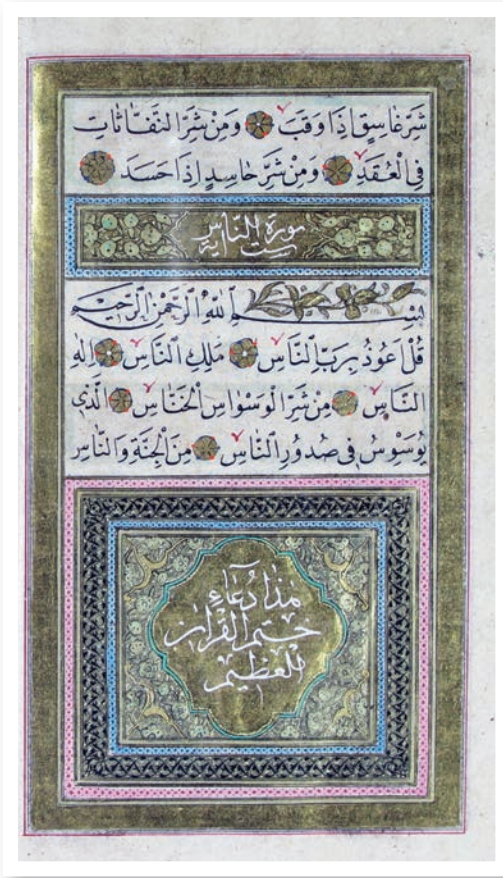 شَرِّ غَاسِقٍ اِذَا وَقَبَ وَمِنْ شَرِّ النَّفَّاثَاتِ
فِى الْعُقَدِ وَمِنْ شَرِّ حَاسِدٍ اِذَا حَسَدَ
سورة النّاس
ست اية
بِسْمِ اللّٰهِ الرَّحْمٰنِ الرَّحِيمِ
قُلْ اَعُوذُ بِرَبِّ النَّاسِ مَلِكِ النَّاسِ اِلٰهِ
النَّاسِ مِنْ شَرِّ الْوَسْوَاسِ الْخَنَّاسِ الَّذِى
يُوَسْوِسُ فِى صُدُورِ النَّاسِ مِنَ الْجِنَّةِ وَالنَّاسِ
هذا دُعَاءِ
ختم القرآن
العظيم